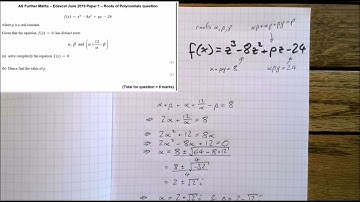 AS Further Maths – Edexcel June 2019 Paper 1 – Roots of Polynomials question
f(z) = z³ − 8z² + pz − 24
where p is a real constant.
Given that the equation f(z) = 0 has distinct roots
α, β and (α + 12/α − β)
(a) solve completely the equation f(z) = 0
(b) Hence find the value of p.
(Total for question = 8 marks)
roots α, β, γ
αβ + αγ + βγ = p
f(z) = z³ − 8z² + pz − 24
α+β+γ = 8
αβγ = 24
α + β + α + 12/α − β = 8
⇒ 2α + 12/α = 8
⇒ 2α² + 12 = 8α
⇒ 2α² − 8α + 12 = 0
⇒ α = 8 ± √(64 − 8×12) / 4
= 8 ± √−32 / 4
= 2 ± √2 i
⇒ α = 2 + √2 i & β = 2 − √2 i